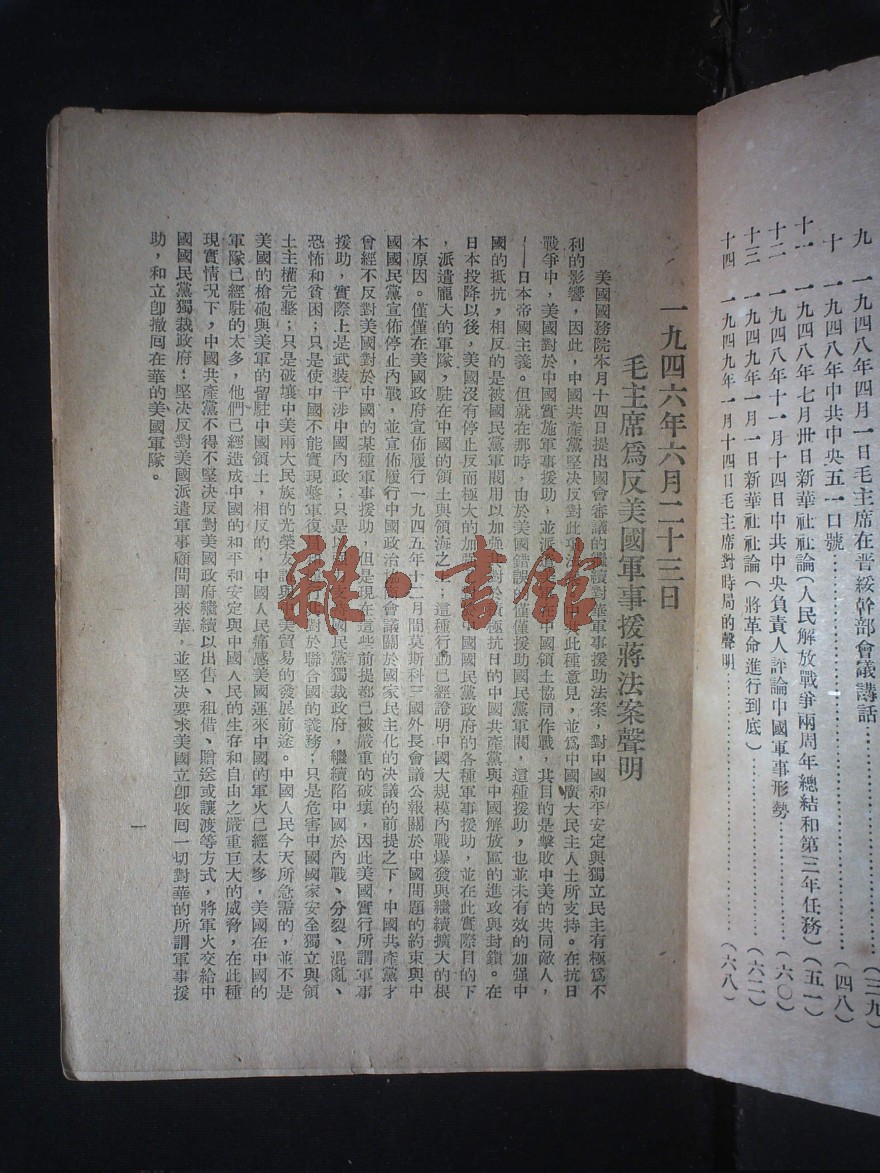 九　一九四八年四月一日毛主席在晋綏幹部會議講話……（三九）
十　一九四八年中共中央五一口號……（四八）
十一　一九四八年七月卅日新華社社論（人民解放戰爭兩周年總結和第三年任務）（五一）
十二　一九四八年十一月十四日中共中央負責人評論中國軍事形勢……（六〇）
十三　一九四九年一月一日新華社社論（將革命進行到底）……（六二）
十四　一九四九年一月十四日毛主席對時局的聲明……（六八）
一九四六年六月二十三日
毛主席爲反美國軍事援蔣法案聲明
美國國務院本月十四日提出國會審議的繼續對華軍事援助法案，對中國和平安定與獨立民主有極爲不
利的影響，因此，中國共產黨堅決反對此項法案。此種意見，並爲中國廣大民主人士所支持。在抗日
戰爭中，美國對於中國實施軍事援助，並派在中國領土協同作戰，其目的是擊敗中美的共同敵人，
——日本帝國主義。但就在那時，由於美國錯誤的僅僅援助國民黨軍閥，這種援助，也並未有效的加强中
國的抵抗，相反的是被國民黨軍閥用以加强對於積極抗日的中國共產黨與中國解放區的進攻與封鎖。在
日本投降以後，美國沒有停止反而極大的加中國國民黨政府的各種軍事援助，並在此實際目的下
，派遣龐大的軍隊，駐在中國的領土與領海之，這種行動已經證明中國大規模內戰爆發與繼續擴大的根
本原因。僅僅在美國政府宣佈履行一九四五年十二月間莫斯科三國外長會議公報關於中國問題的約束與中
國國民黨宣佈停止內戰，並宣佈履行中國政治協商會議關於國家民主化的决議的前提之下，中國共產黨才
曾經不反對美國對於中國的某種軍事援助，但是現在這些前提都已被嚴重的破壞，因此美國實行所謂軍事
援助，實際上是武裝干涉中國內政；只是支國民黨獨裁政府，繼續陷中國於內戰、分裂、混亂、
恐怖和貧困；只是使中國不能實現整軍復對於聯合國的義務；只是危害中國國家安全獨立與領
土主權完整；只是破壞中美兩大民族的光榮友誼與中美貿易的發展前途。中國人民今天所急需的，並不是
美國的槍砲與美軍的留駐中國領土，相反的，中國人民痛感美國運來中國的軍火已經太多，美國在中國的
軍隊已經駐的太多，他們已經造成中國的和平和安定與中國人民的生存和自由之嚴重巨大的威脅，在此種
現實情况下，中國共產黨不得不堅决反對美國政府繼續以出售、租借、贈送或讓渡等方式，將軍火交給中
國國民黨獨裁政府；堅决反對美國派遣軍事顧問團來華，並堅决要求美國立卽收囘一切對華的所謂軍事援
助，和立卽撤囘在華的美國軍隊。
一
雜·書館